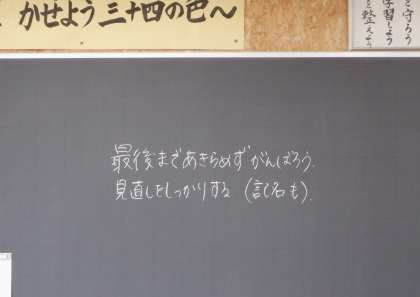 かせよう三十四の巴〜
を守ろう
学習しよう
と整えよう
最後まであきらめずがんばろう.
見直しをしっかりする (記名も).